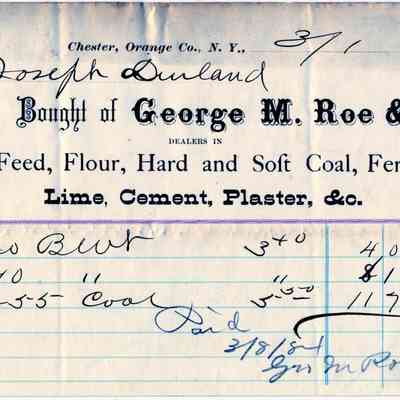 Chester, Orange Co., N. Y., 3/1
Joseph Durland
Bought of George M. Roe &
DEALERS IN
Feed, Flour, Hard and Soft Coal, Fer
Lime, Cement, Plaster, &c.
3 40 4 0
10 " " 8 1
55 Coal 5.50 11 7
Paid
3/8/84
Geo M Ro